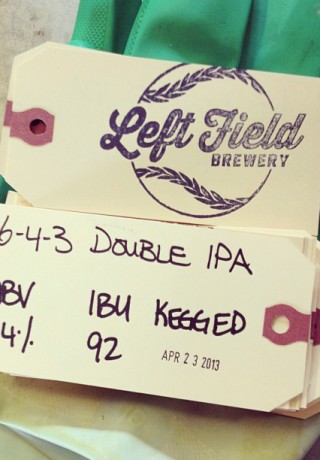 Left Field
BREWERY
6-4-3 DOUBLE IPA
BV IBU KEGGED
4% 92 APR 23 2013